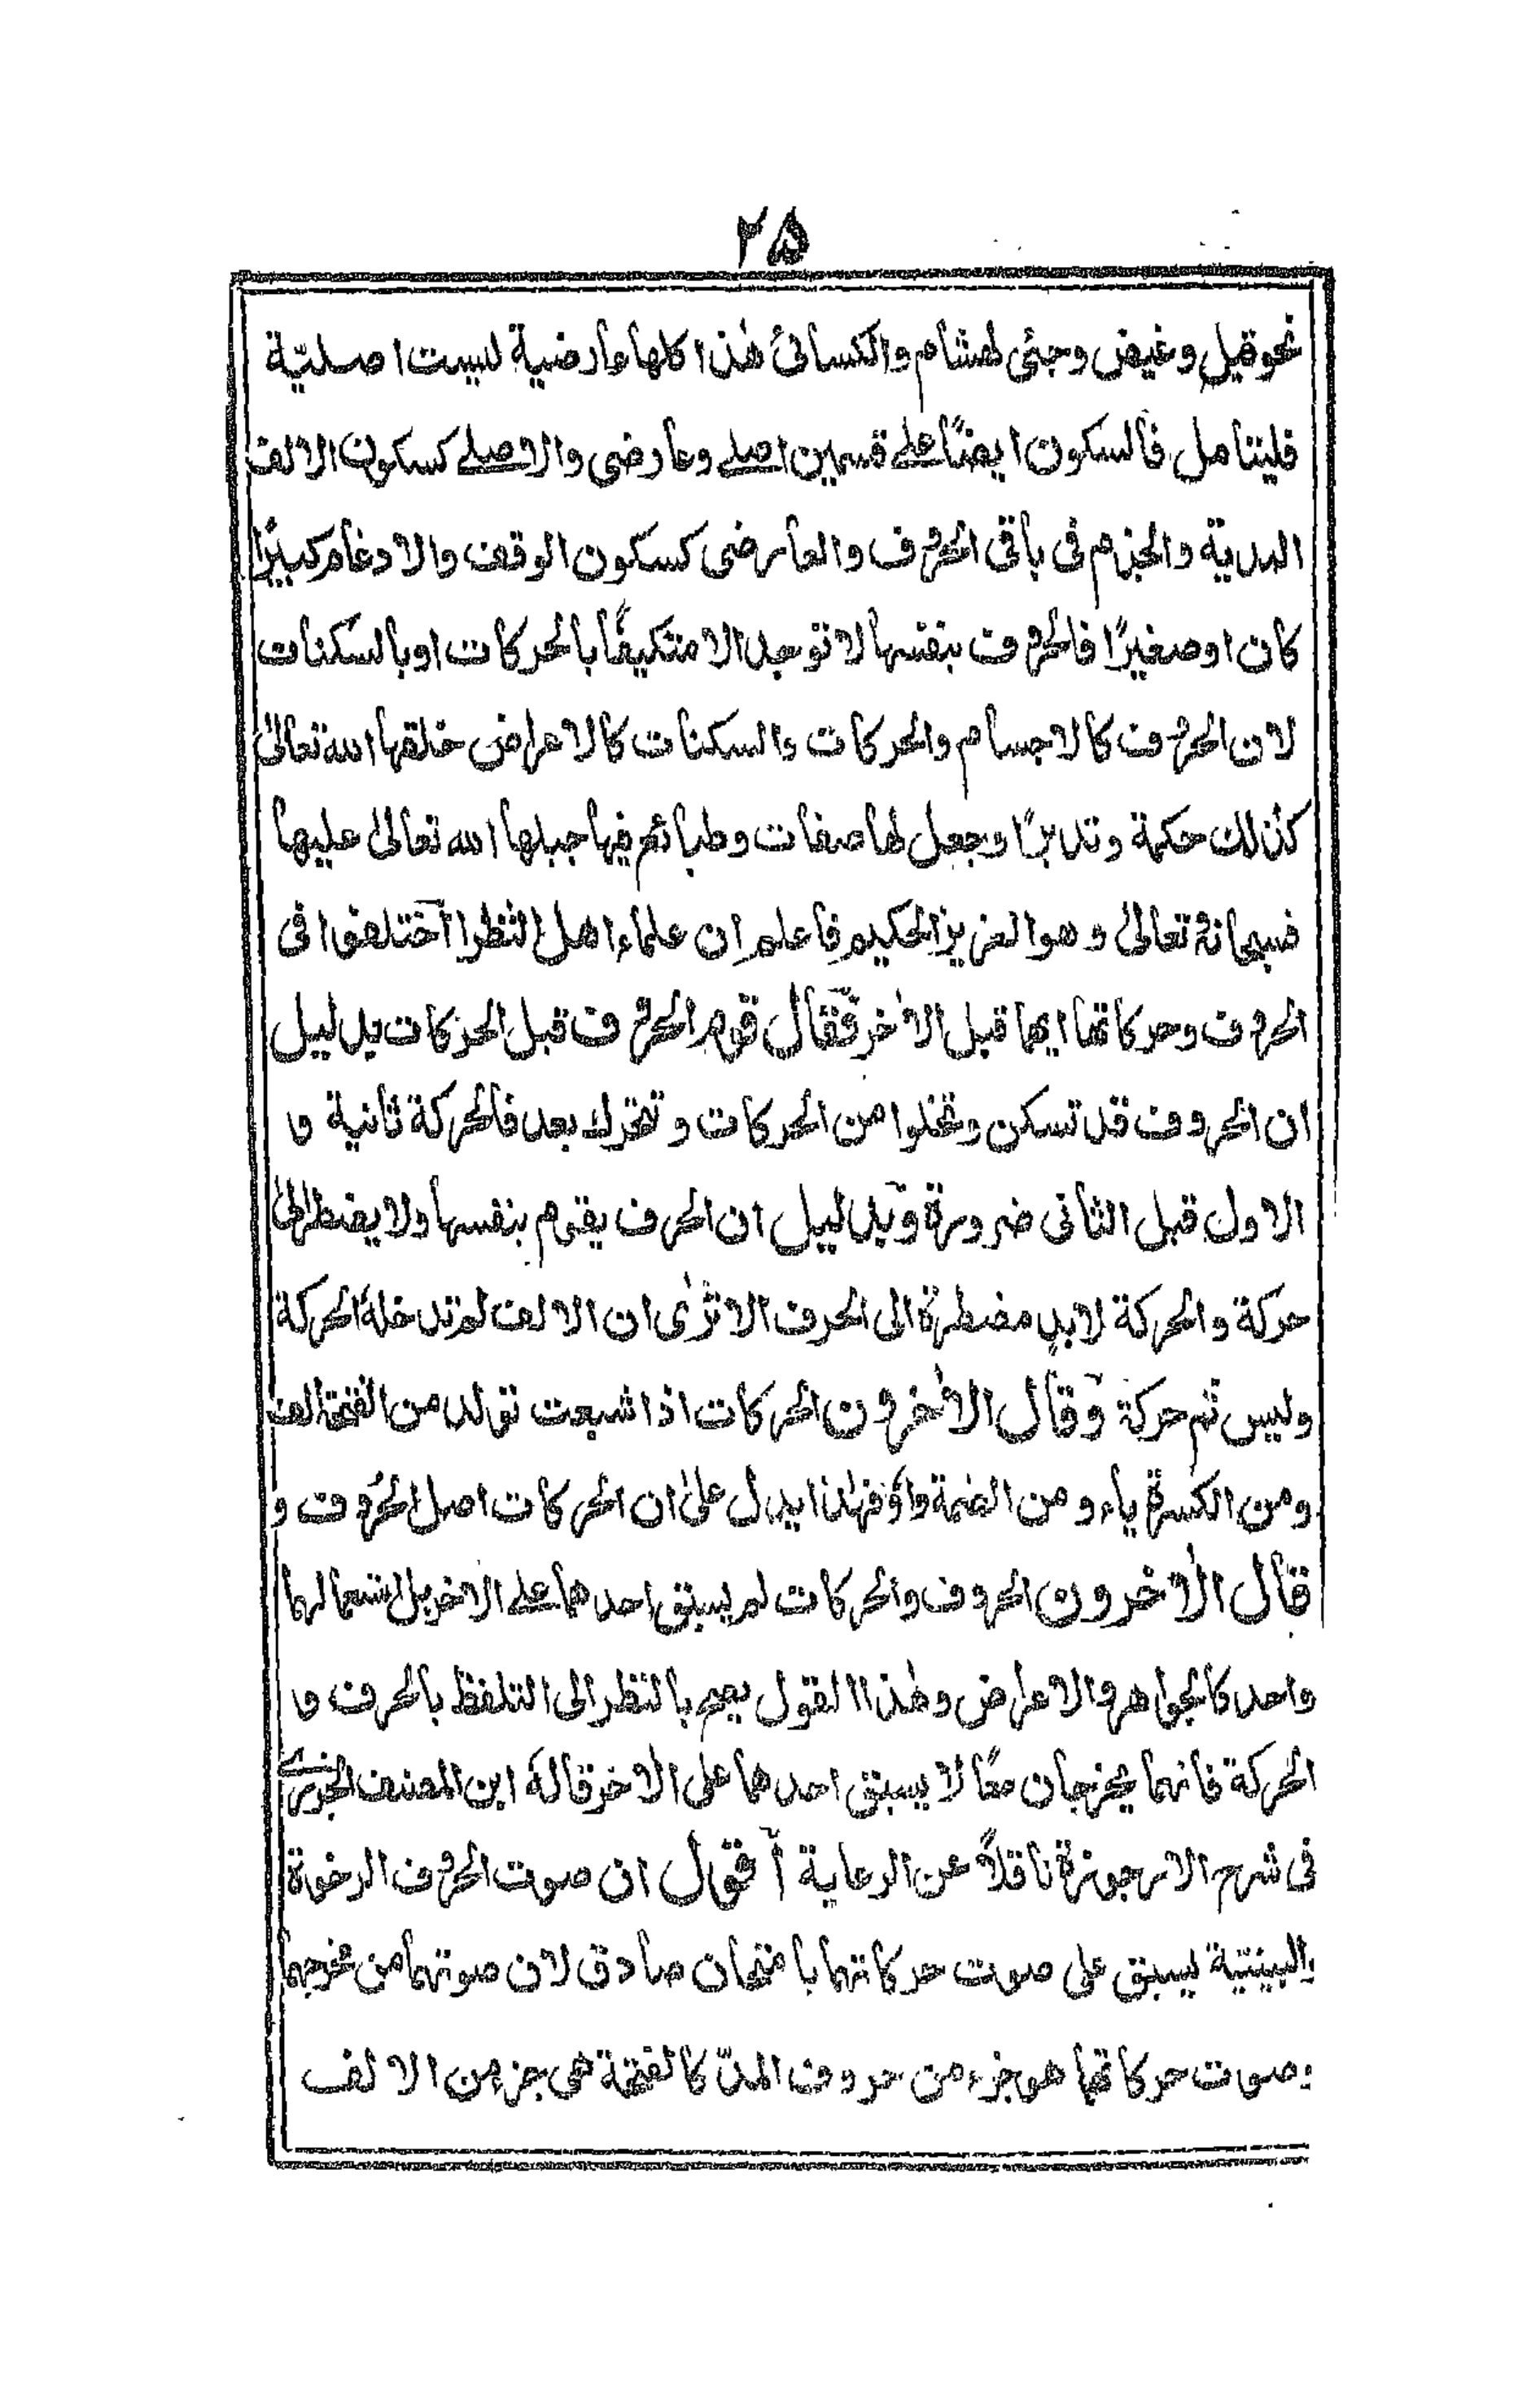 ۲۵
نحو قيل وغيض وجئى لهشام والكسائى هٰذا كلها عارضية ليست اصليّة
فليتامل فالسكون ايضًا على قسمين اصلے وعارضى والاصلے كسكون الالف
المدية والجزم فى باقى الحروف والعارضى كسكون الوقف والادغام كبيرًا
كان اوصغيرًا فالحروف بنفسها لا توجد الا متكيفًا بالحركات اوبالسكنات
لان الحروف كالاجسام والحركات والسكنات كالاعراض خلقها الله تعالىٰ
كذلك حكمة وتدبرًا وجعل لها صفات وطبائع فيها جبلها الله تعالىٰ عليها
فسبحانهٗ تعالىٰ وهو العزيز الحكيم فاعلم ان علماء اهل النظر اختلفوا فى
الحروف وحركاتها ايهما قبل الاٰخر فقال قوم الحروف قبل الحركات بدليل
ان الحروف قد تسكن وتخلوا من الحركات وتتحرك بعد فالحركة ثانية و
الاول قبل الثانى ضرورة وبدليل ان الحرف يقوم بنفسها ولا يضطر الىٰ
حركة والحركة لابد مضطرة الى الحرف الا ترٰى ان الالف لم تدخله الحركة
وليس ثم حركة وقال الاٰخرون الحركات اذا شبعت تولد من الفتحة الف
ومن الكسرة ياء ومن الضمة واوٌ فهٰذا يدل علىٰ ان الحركات اصل الحُروف و
قال الاٰخرون الحروف والحركات لم يسبق احدهما علے الاخر بل استعمالهما
واحد كالجواهر والاعراض وهٰذا القول يصح بالنظر الى التلفظ بالحرف و
الحركة فانهما يخرجان معًا لا يسبق احدهما على الاٰخر قاله ابن المصنف الجزرے
فى شرح الارجوزة ناقلاً عن الرعاية أقول ان صوت الحروف الرخوة
والبينية يسبق على صوت حركاتها بامتحان صادق لان صوتهما من مخرجهما
وصوت حركاتهما هو جزء من حروف المدّ كالفتحة هى جزء من الالف